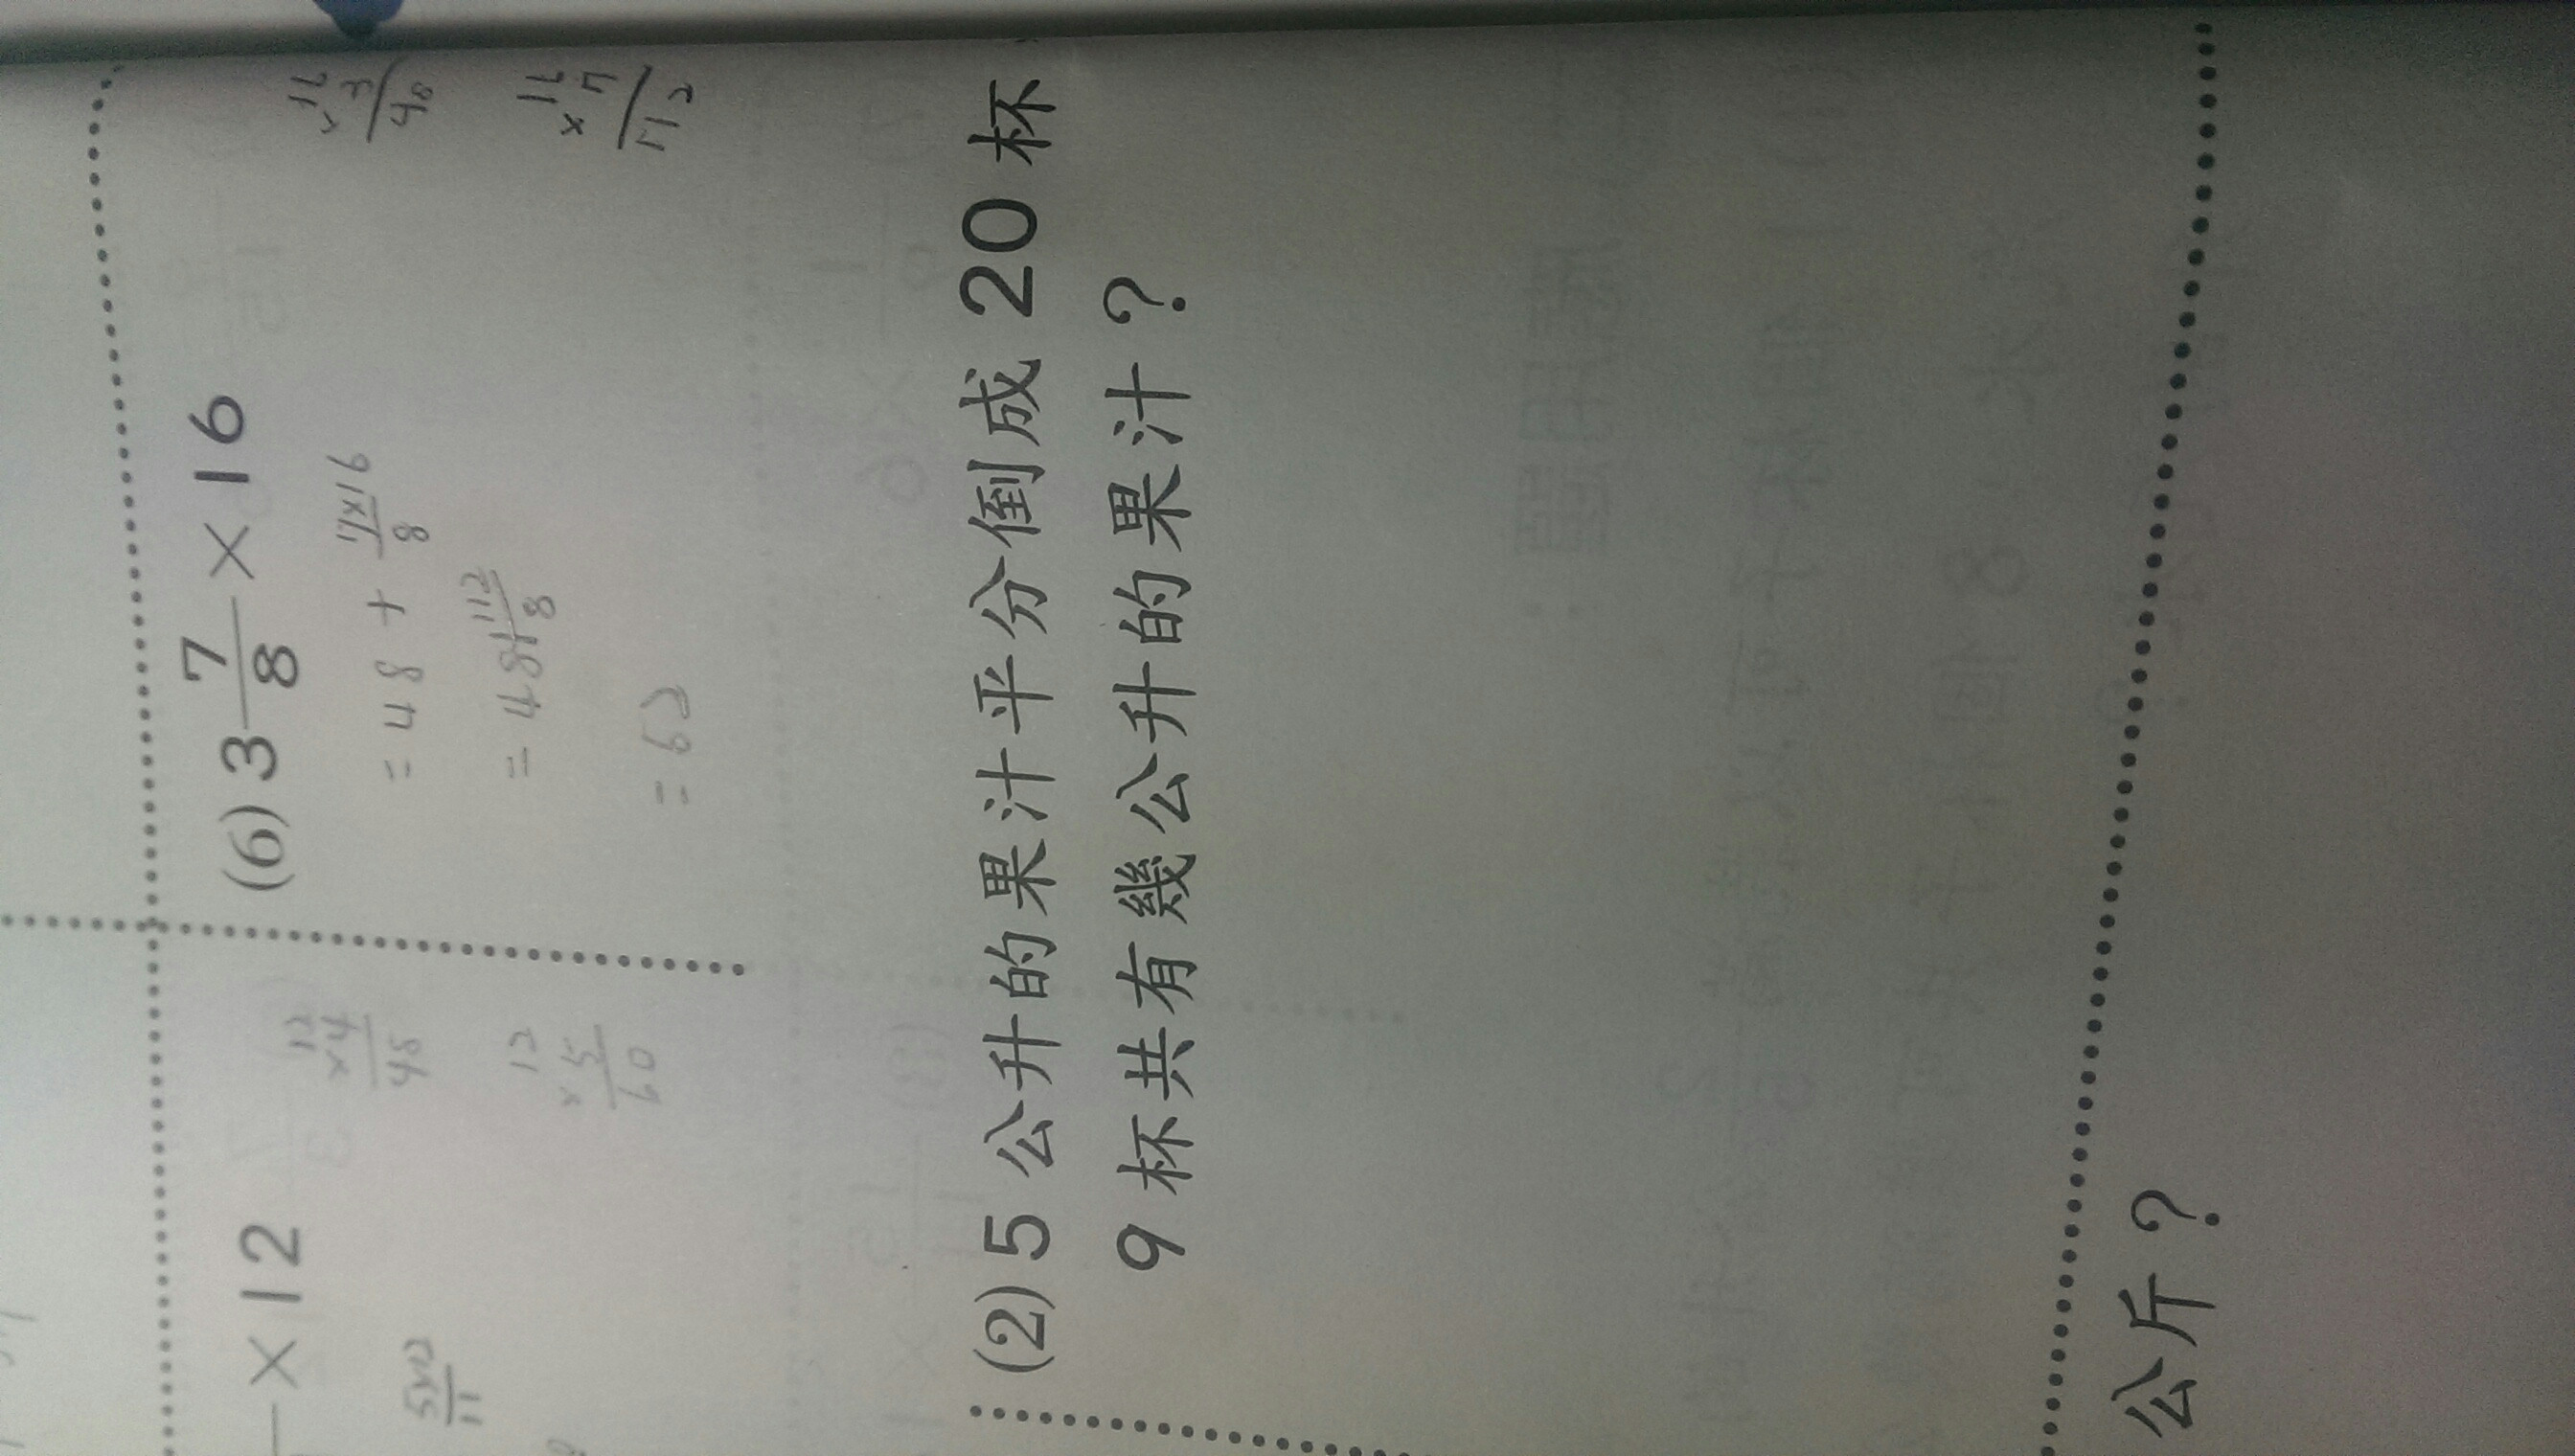 × 12
5×12
11
12
×4
48
12
× 5
60
(6) 3 7/8 × 16
= 48 + 7×16/8
= 48+112/8
= 62
16
× 3
48
16
× 7
112
(2) 5 公升的果汁平分倒成 20 杯,
9 杯共有幾公升的果汁?
公斤?